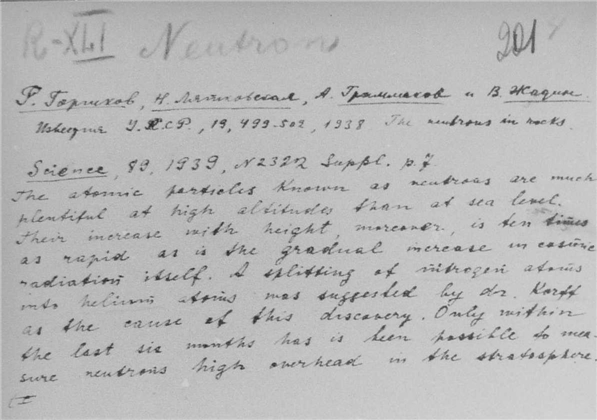 R-XLI Neutrons 201 4
Г. Горшков, Н. Лятковская, А. Граммаков и В. Жадин.
Известия У.К.С.Р., 19, 499-502, 1938 The neutrons in rocks.
Science, 89, 1939, N2322 Suppl. p. 7
The atomic particles known as neutrons are much
plentiful at high altitudes than at sea level.
Their increase with height, moreover, is ten times
as rapid as is the gradual increase in cosmic
radiation itself. A splitting of nitrogen atoms
into helium atoms was suggested by dr. Korff
as the cause of this discovery. Only within
the last six months has is been possible to mea-
sure neutrons high overhead in the stratosphere.